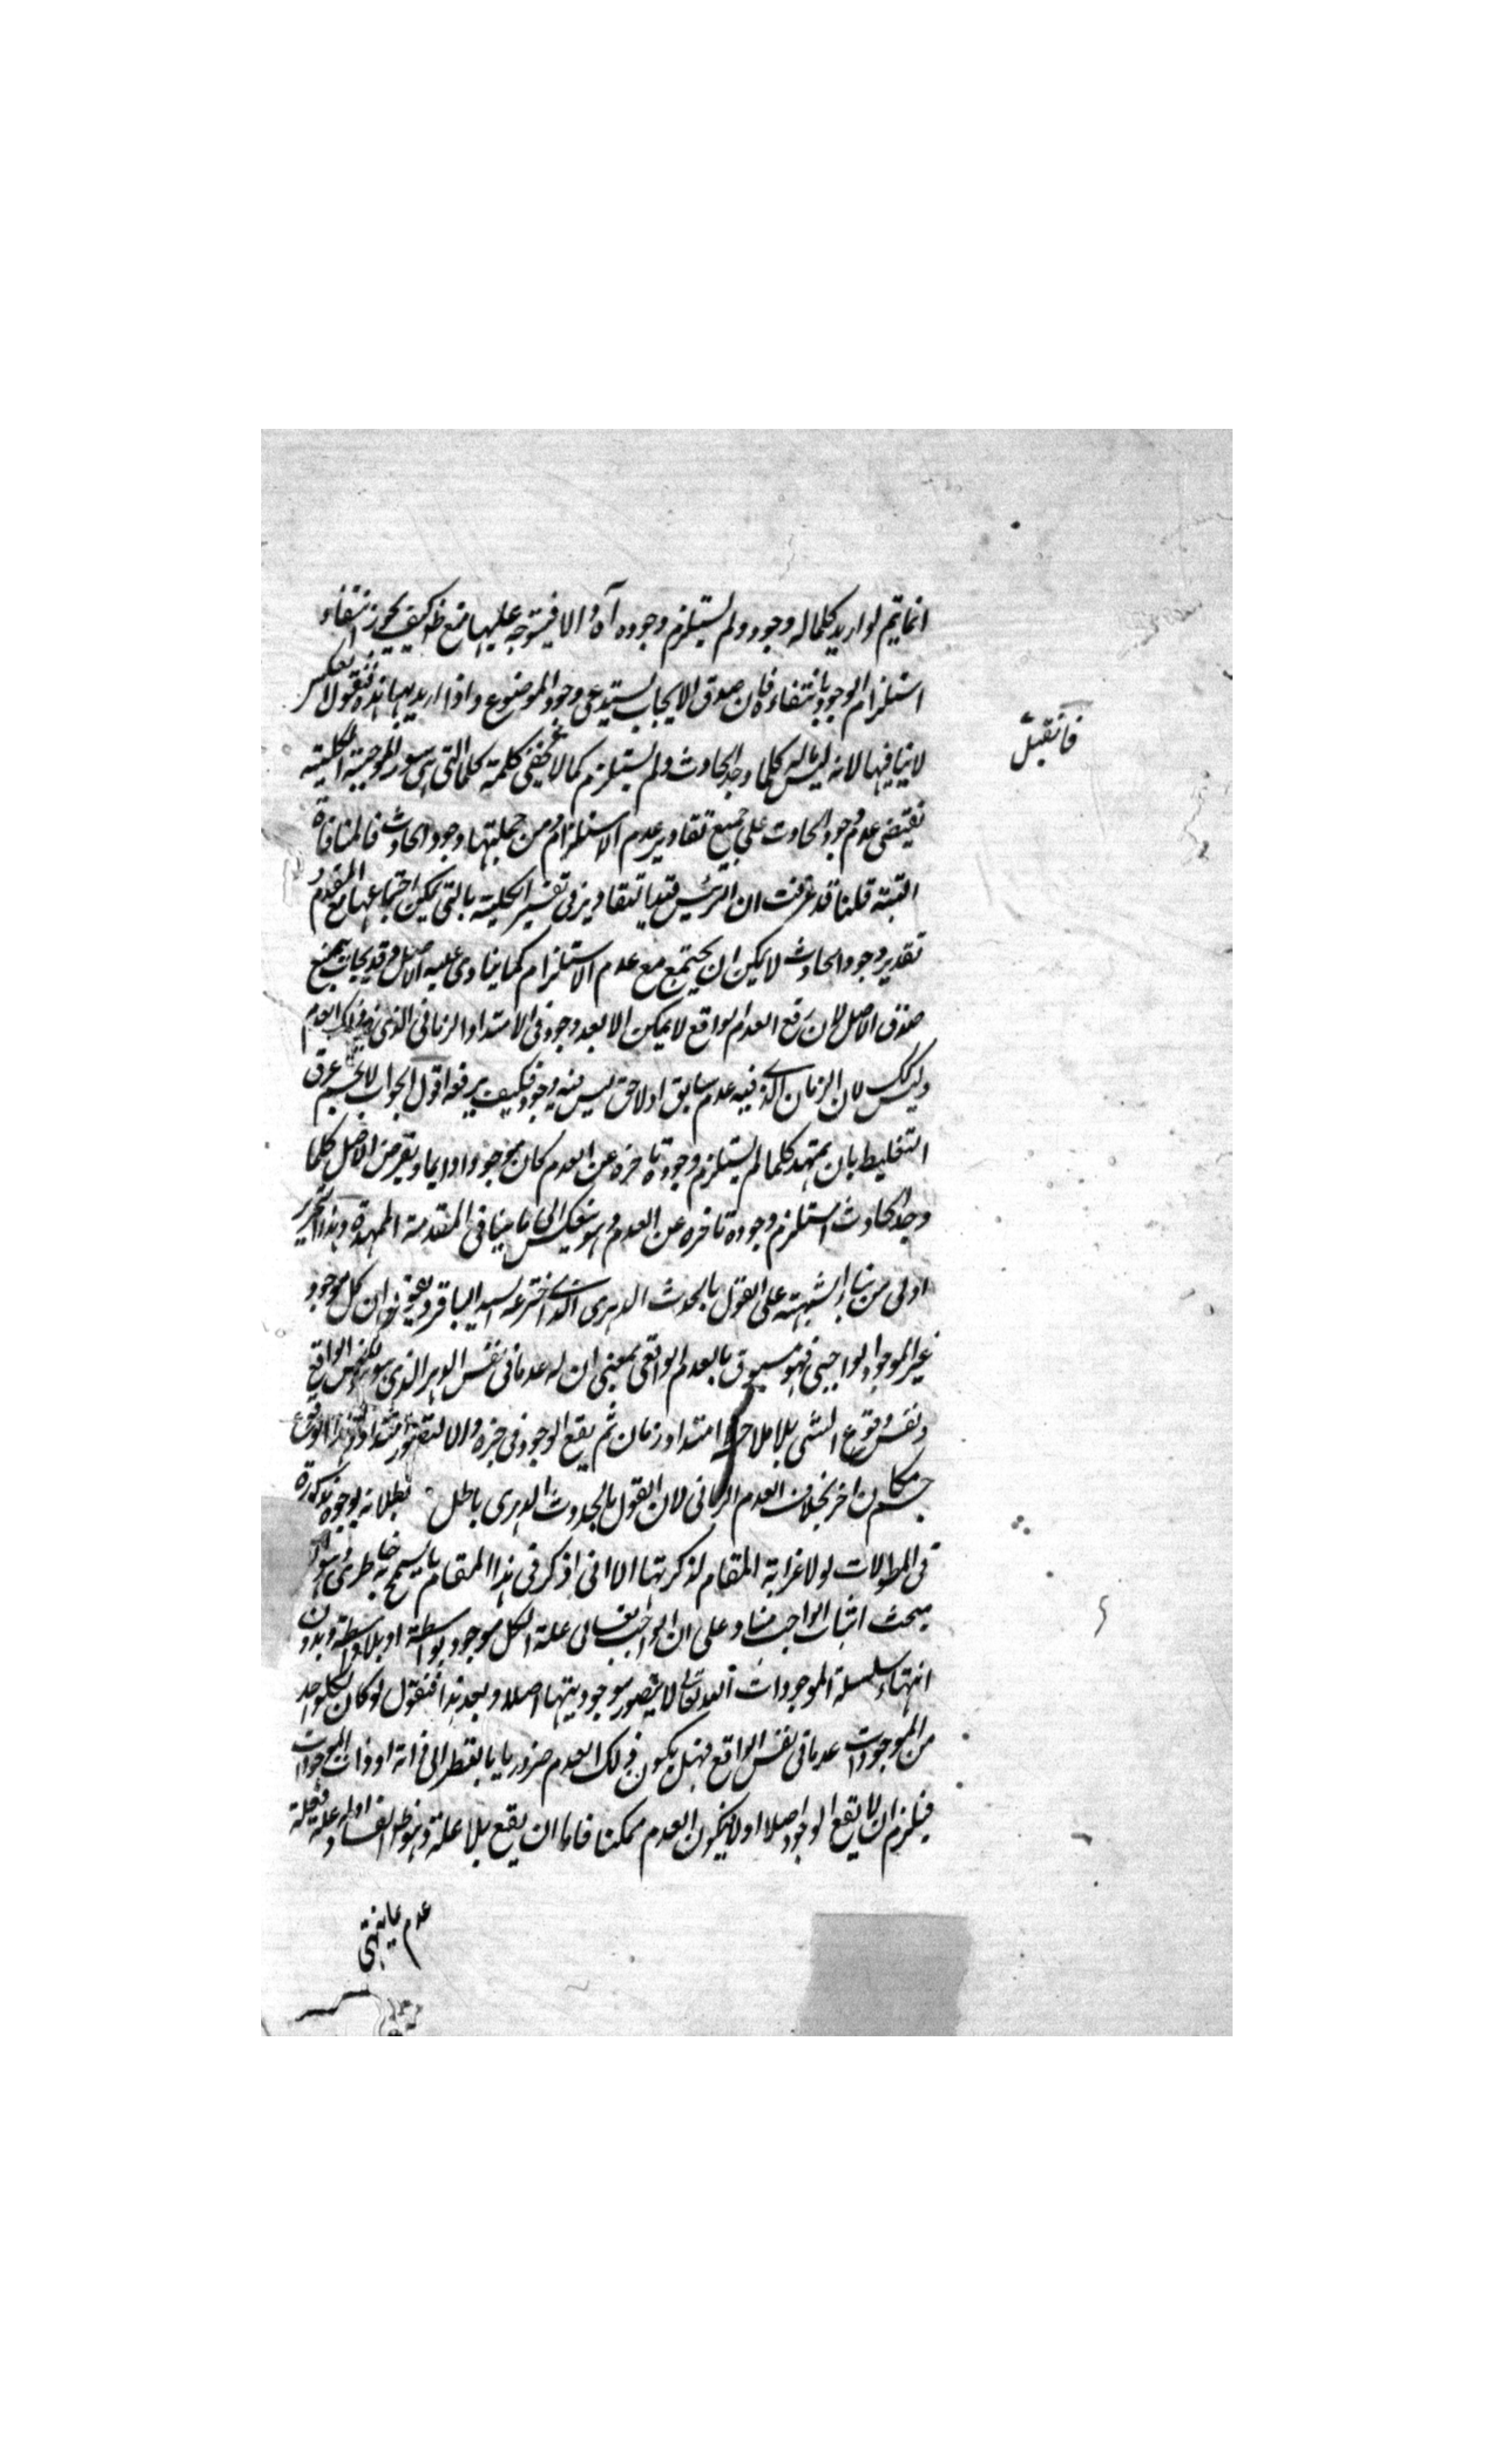 انما يتم لو اريد كلما له وجود ولم يستلزم وجوده آه والا فيتوجه عليها منع ظ كيف يجوز انتفاء
استلزام الوجود بانتفاءه فان صدق الايجاب يستدعي وجود الموضوع واذا اريد بها هذه فنقول لا
لا ينافيها لانه ليس ماله كلما وجد الحادث ولم يستلزم كما لا يخفى كلمة كلما التى هى سور الموجبة الكلية
تقتضى عدم وجود الحادث على جميع تقادير عدم الاستلزام ومن جملتها وجود الحادث فالمنافاة
البتة قلنا قد عرفت ان الرئيس قيد التقادير فى تفسير الكلية بالتى يمكن اجتماعها مع المقدم و
تقدير وجود الحادث لا يمكن ان يجتمع مع عدم الاستلزام كما ينادى عليه الاصل وقد يجاب بمنع
صدق الاصل لان رفع العدم الواقع لا يمكن الا بعد وجود فى الامتداد الزمانى الذى فيه ذلك العدم
وليس كك لان الزمان الذى فيه عدم سابق او لاحق ليس فيه وجود فكيف يرفعه اقول الجواب لا يحسم عرق
التغليط بان يمهد كلما لم يستلزم وجوده تاخره عن العدم كان موجودا دايما ويفرض الاصل كلما
وجد الحادث استلزم وجوده تاخره عن العدم وهو ينعكس الى ما ينافى المقدمة الممهدة وهذا التحرير
اولى من بناء الشبهة على القول بالحدث الدهرى الذى اخترعه السيد الباقر وهو ان كل موجود
غير الموجود الواجبى فهو مسبوق بالعدم الواقعى بمعنى ان له عدما فى نفس الدهر الذى هو نفس الواقع
ونفس وقوع الشى بلا ملاحظة امتداد زمان ثم يقع الوجود فى حيزه والا لتصور امتداد وهذا الوقوع
جسم مكان اخر بخلاف العدم الزمانى لان القول بالحدوث الدهرى باطل بطلانه بوجوه مذكورة
فى المطولات لولا غرابة المقام لذكرتها الا انى اذكر فى هذا المقام ما يسمح به خاطرى وهو ان
مبحث اثبات الواجب مناد على ان الواجب تعالى علة لكل موجود بواسطة او بلا واسطة وبدون
انتهاء سلسلة الموجودات اليه تعالى لا يتصور موجود بينها اصلا وبعد هذا فنقول لو كان لكل واحد
من الموجودات عدما فى نفس الواقع فهل يكون ذلك العدم ضروريا بالنظر الى ذاته او ذات الموجودات
فيلزم ان لا يقع الوجود اصلا او لا فيكون العدم ممكنا فاما ان يقع بلا علة وهو ظ الفساد او له علة فعلة
فان قيل
عدم ما ينتهى